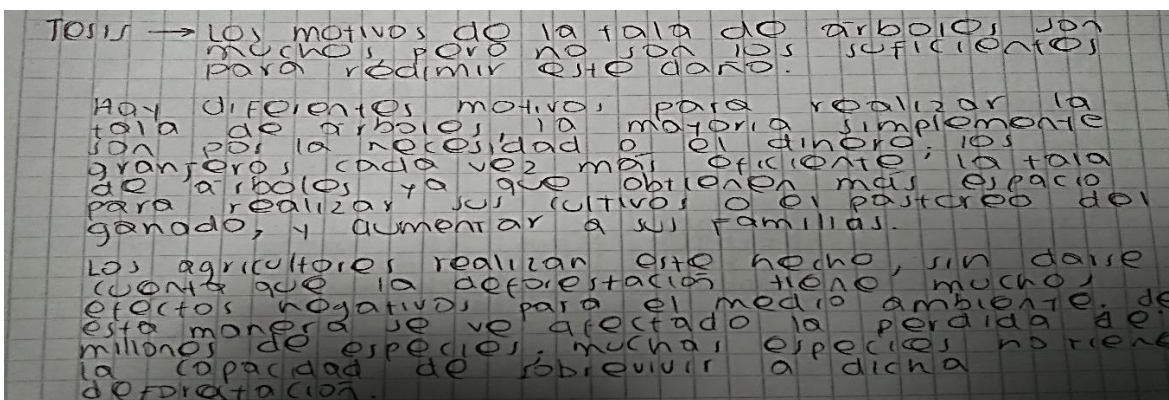 Tesis → Los motivos de la tala de árboles son
muchos pero no son los suficientes
para redimir este daño.
Hay diferentes motivos para realizar la
tala de árboles, la mayoría simplemente
son por la necesidad o el dinero; los
granjeros cada vez más eficiente; la tala
de arboles ya que obtienen más espacio
para realizar sus cultivos o el pastoreo del
ganado, y aumentar a sus familias.
Los agricultores realizan este hecho, sin darse
cuenta que la deforestación tiene muchos
efectos negativos para el medio ambiente. de
esta manera se ve afectado la perdida de
millones de especies, muchas especies no tiene
la capacidad de sobrevivir a dicha
deforatación.